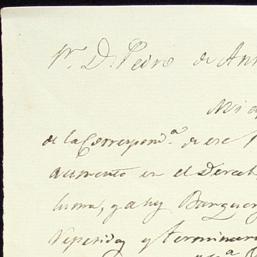 Sr. Dn. Pedro de An
Mi
de la Correspond.a de ese
aumento en el Derech
y a hay Banquer
repetidas y terminar